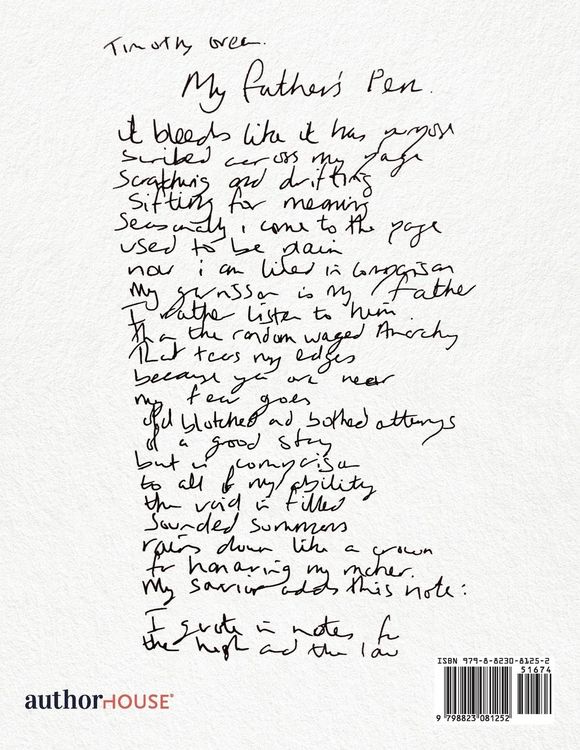 Timothy
My Father's Pen.
it bleeds like it has purpose
scribed across my page
Scratching and drifting
Sifting for meaning
Seasonally i come to the page
used to be plain
now i am liked in comparison
My is my father
I rather listen to him.
than the random waged Anarchy
that tears my edges
because you are near
my fear goes
old blotched and botched attempts
of a good story
but in comparison
to all of my ability
the void is filled
Sounded summers
rains down like a crown
for honoring my maker.
My savior adds this note:
I quote in notes for
the high and the low
authorHOUSE®
ISBN 979-8-8230-8125-2
51674
9 798823 081252